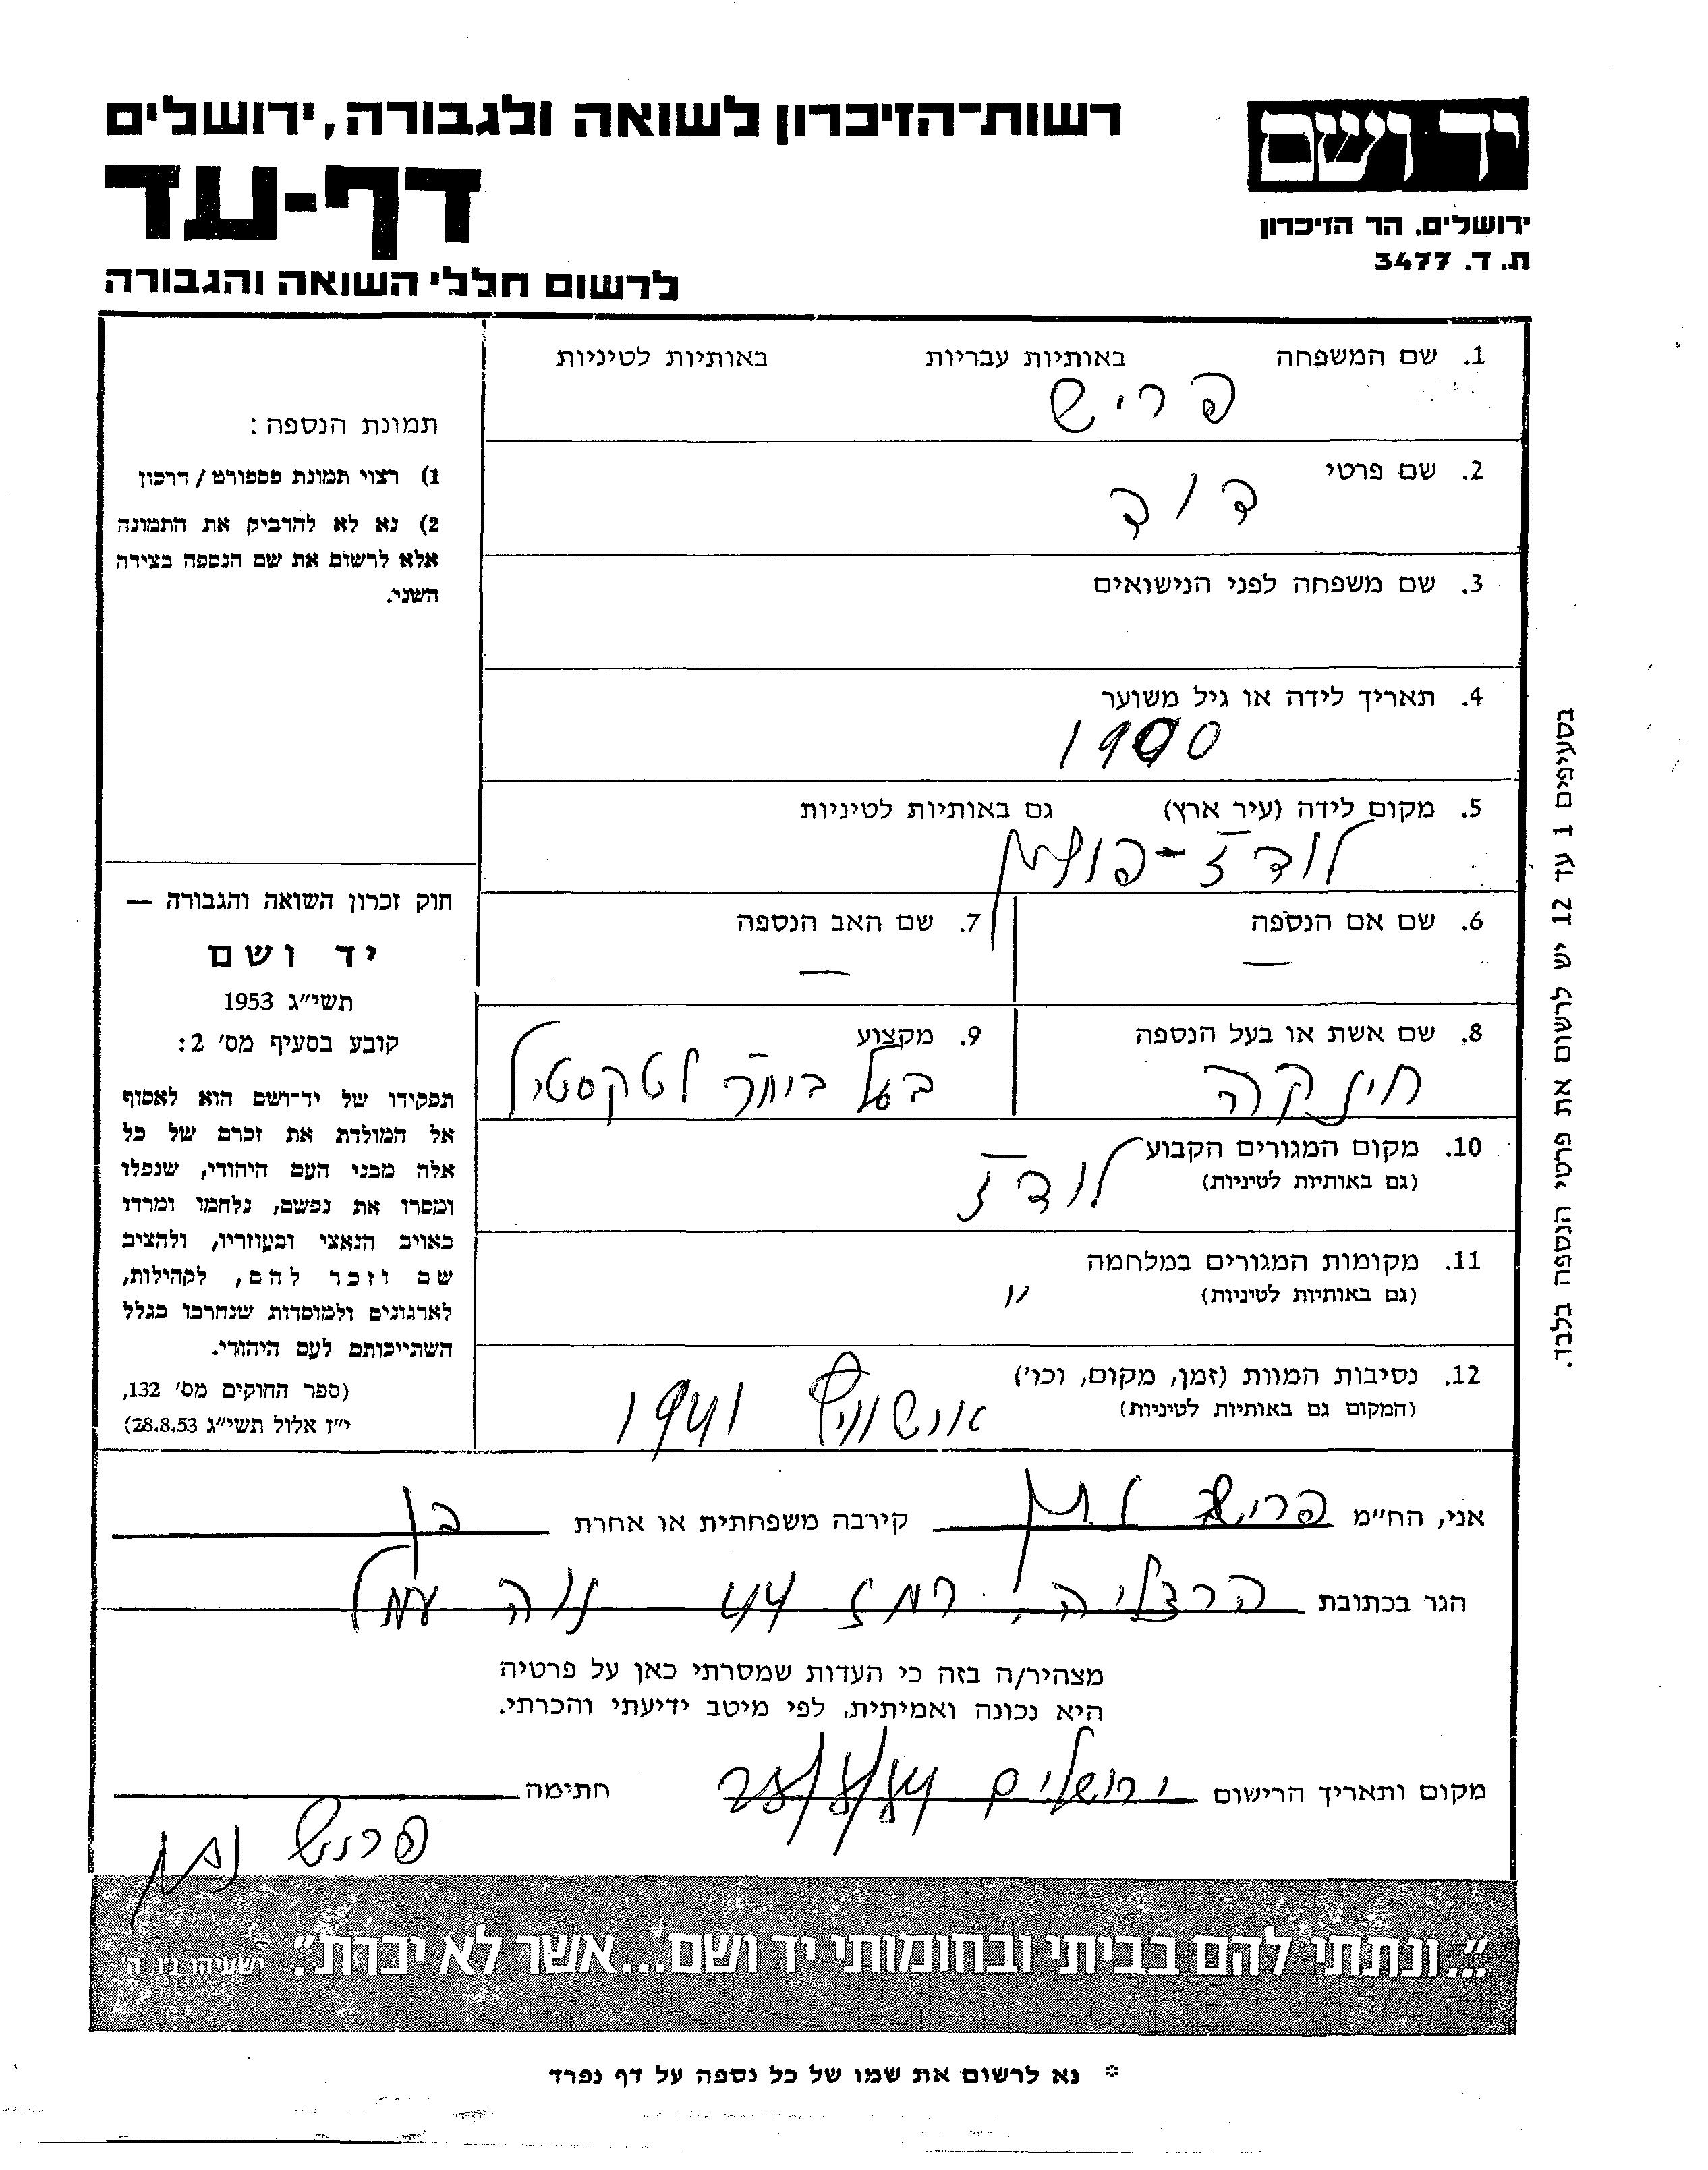 רשות־הזיכרון לשואה ולגבורה, ירושלים
יד ושם
דף-עד
ירושלים, הר הזיכרון
ת. ד. 3477
לרשום חללי השואה והגבורה
1. שם המשפחה באותיות עבריות באותיות לטיניות
פריש
2. שם פרטי
דוד
3. שם משפחה לפני הנישואים
4. תאריך לידה או גיל משוער
1900
5. מקום לידה (עיר ארץ) גם באותיות לטיניות
לודז - פולין
6. שם אם הנספה
—
7. שם האב הנספה
—
8. שם אשת או בעל הנספה
9. מקצוע
בעל ביח"ר לטקסטיל
10. מקום המגורים הקבוע
(גם באותיות לטיניות)
לודז
11. מקומות המגורים במלחמה
(גם באותיות לטיניות)
"
12. נסיבות המוות (זמן, מקום, וכו')
(המקום גם באותיות לטיניות)
אושוויץ 1941
תמונת הנספה:
1) רצוי תמונת פספורט / דרכון
2) נא לא להדביק את התמונה
אלא לרשום את שם הנספה בצידה
השני.
חוק זכרון השואה והגבורה —
יד ושם
תשי״ג 1953
קובע בסעיף מס' 2:
תפקידו של יד־ושם הוא לאסוף
אל המולדת את זכרם של כל
אלה מבני העם היהודי, שנפלו
ומסרו את נפשם, נלחמו ומרדו
באויב הנאצי ובעוזריו, ולהציב
שם וזכר להם, לקהילות,
לארגונים ולמוסדות שנחרבו בגלל
השתייכותם לעם היהודי.
(ספר החוקים מס' 132,
י״ז אלול תשי״ג 28.8.53)
בסעיפים 1 עד 12 יש לרשום את פרטי הנספה בלבד.
אני, הח״מ פריש קירבה משפחתית או אחרת בן
הגר בכתובת הרצליה, רמז 44 נוה עמל
מצהיר/ה בזה כי העדות שמסרתי כאן על פרטיה
היא נכונה ואמיתית, לפי מיטב ידיעתי והכרתי.
מקום ותאריך הרישום ירושלים חתימה
פריש
"...ונתתי להם בביתי ובחומותי יד ושם...אשר לא יכרת". ישעיהו נ״ו, ה'
* נא לרשום את שמו של כל נספה על דף נפרד